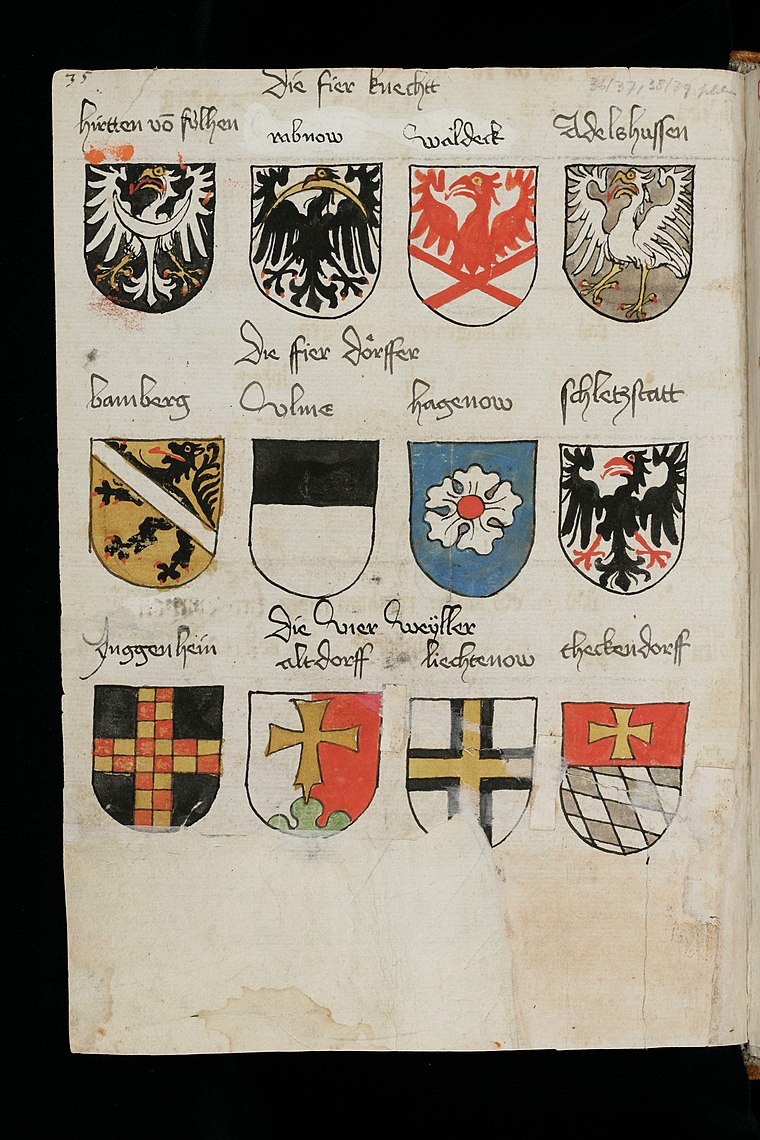 35
Die fier knechtt
hirtten võ fulhen rabnow waldeck Adelshussen
Die ffier dörffer
bamberg Vlme hagenow schletzstatt
Die Vier Weÿller
altdorff liechtenow theckendorff